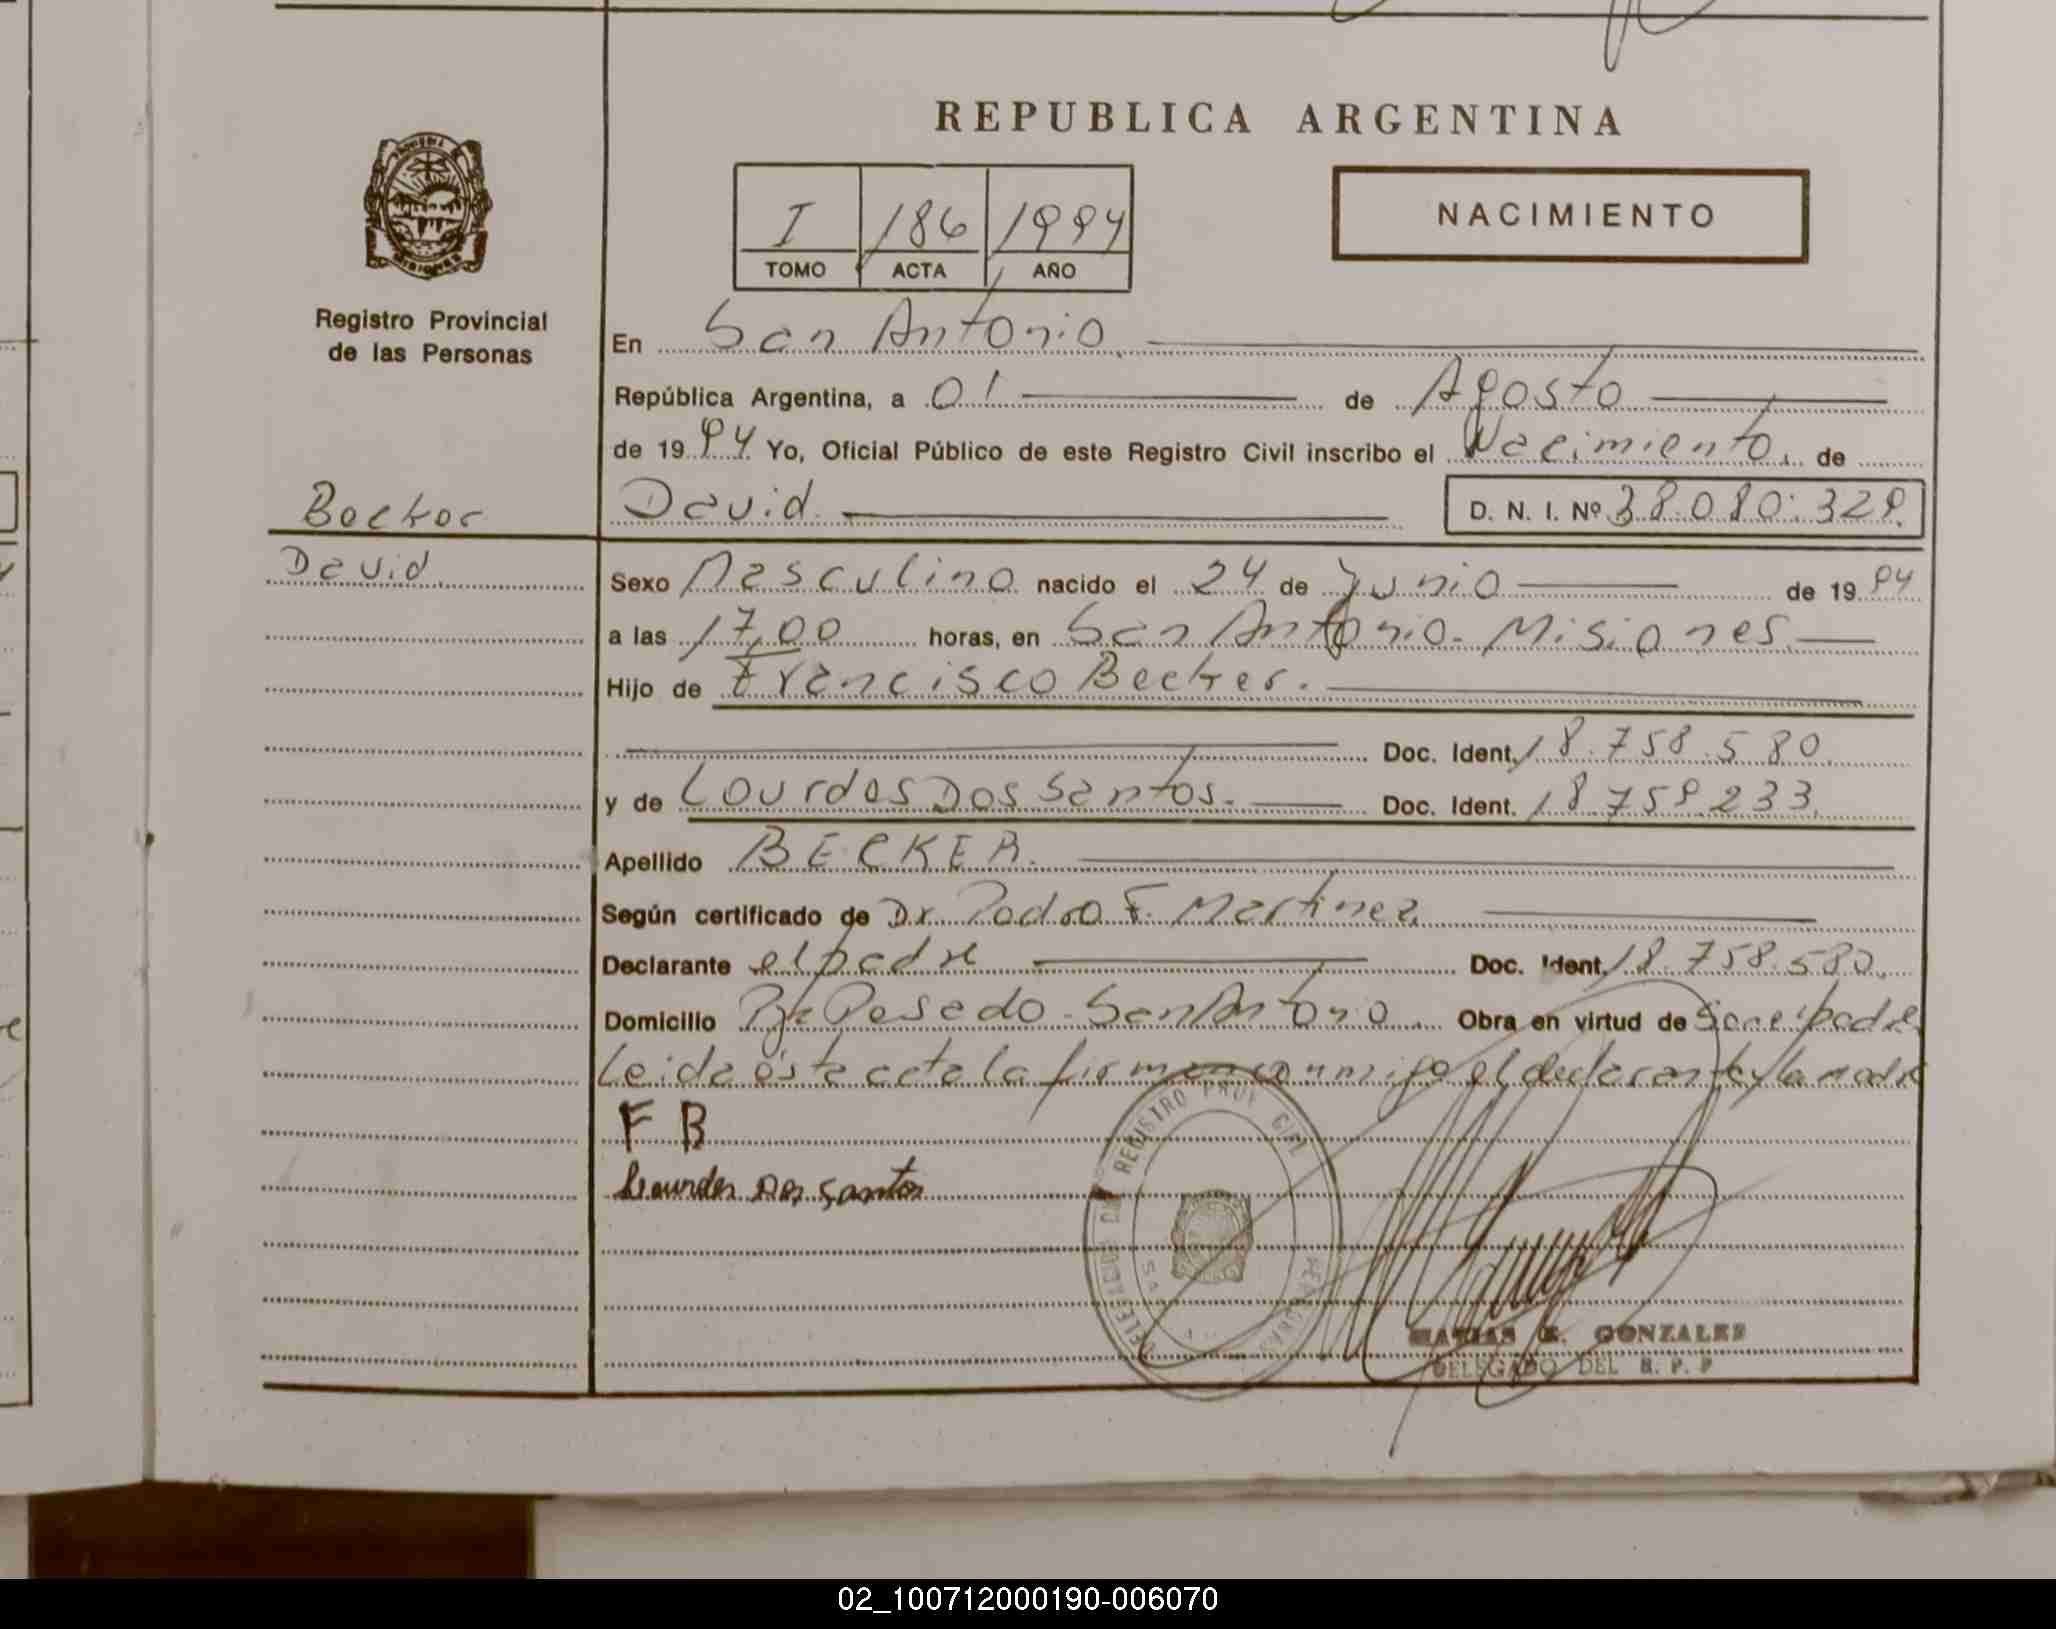 REPUBLICA ARGENTINA
I 186 1994
TOMO ACTA AÑO
NACIMIENTO
MISIONES
Registro Provincial
de las Personas
Becker
David
En San Antonio
República Argentina, a 01 de Agosto
de 1994 Yo, Oficial Público de este Registro Civil inscribo el Nacimiento de
David D. N. I. Nº 38.080.329
Sexo Masculino nacido el 24 de Junio de 1994
a las 17,00 horas, en San Antonio - Misiones
Hijo de Francisco Becker.
Doc. Ident. 18.758.580
y de Lourdes Dos Santos. Doc. Ident. 18.759.233
Apellido BECKER.
Según certificado de Dr. Pedro F. Martinez
Declarante el padre Doc. Ident. 18.758.580.
Domicilio Posado - San Antonio Obra en virtud de Ser el padre
Leida ésta acta la firman conmigo el declarante y la madre
F B
Lourdes Dos Santos
DELEGACION DEL REGISTRO PROV. DE LAS PERSONAS
MATIAS GONZALES
DELEGADO DEL R. P. P
02_100712000190-006070